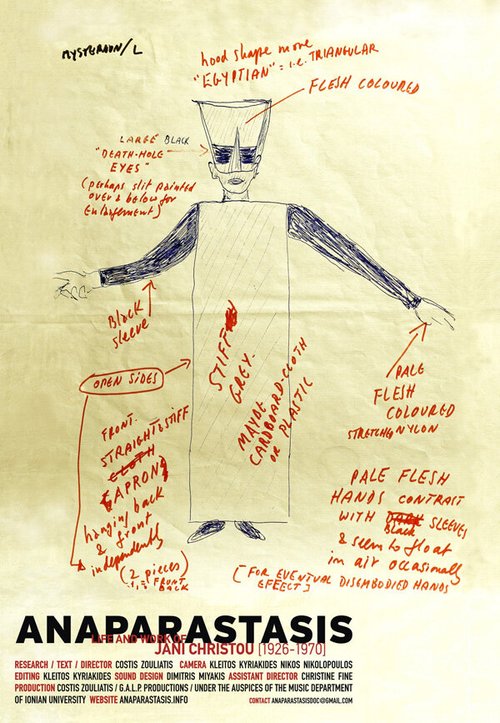 MYSTERION/L
hood shape more
"EGYPTIAN" = i.e. TRIANGULAR
FLESH COLOURED
LARGE BLACK
"DEATH-HOLE
EYES"
(perhaps slit painted
over & below for
Enlargement)
Black
sleeve
OPEN SIDES
STIFF
GREY.
MAYBE
CARDBOARD-CLOTH
OR PLASTIC
PALE
FLESH
COLOURED
STRETCH NYLON
FRONT.
STRAIGHT & STIFF
CLOTH
(APRON)
hanging back
& front
independently
(2 pieces)
i.e. FRONT
BACK
PALE FLESH
HANDS CONTRAST
WITH DARK SLEEVES
Black
& seem to float
in air occasionally
[FOR EVENTUAL DISEMBODIED HANDS
EFFECT]
ANAPARASTASIS
LIFE AND WORK OF
JANI CHRISTOU [1926-1970]
RESEARCH / TEXT / DIRECTOR COSTIS ZOULIATIS CAMERA KLEITOS KYRIAKIDES NIKOS NIKOLOPOULOS
EDITING KLEITOS KYRIAKIDES SOUND DESIGN DIMITRIS MIYAKIS ASSISTANT DIRECTOR CHRISTINE FINE
PRODUCTION COSTIS ZOULIATIS / G.A.L.P. PRODUCTIONS / UNDER THE AUSPICES OF THE MUSIC DEPARTMENT
OF IONIAN UNIVERSITY WEBSITE ANAPARASTASIS.INFO
CONTACT ANAPARASTASISDOC@GMAIL.COM